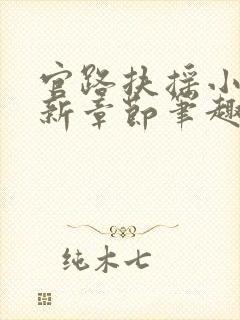 官路扶摇小
新章节笔趣
纯木七